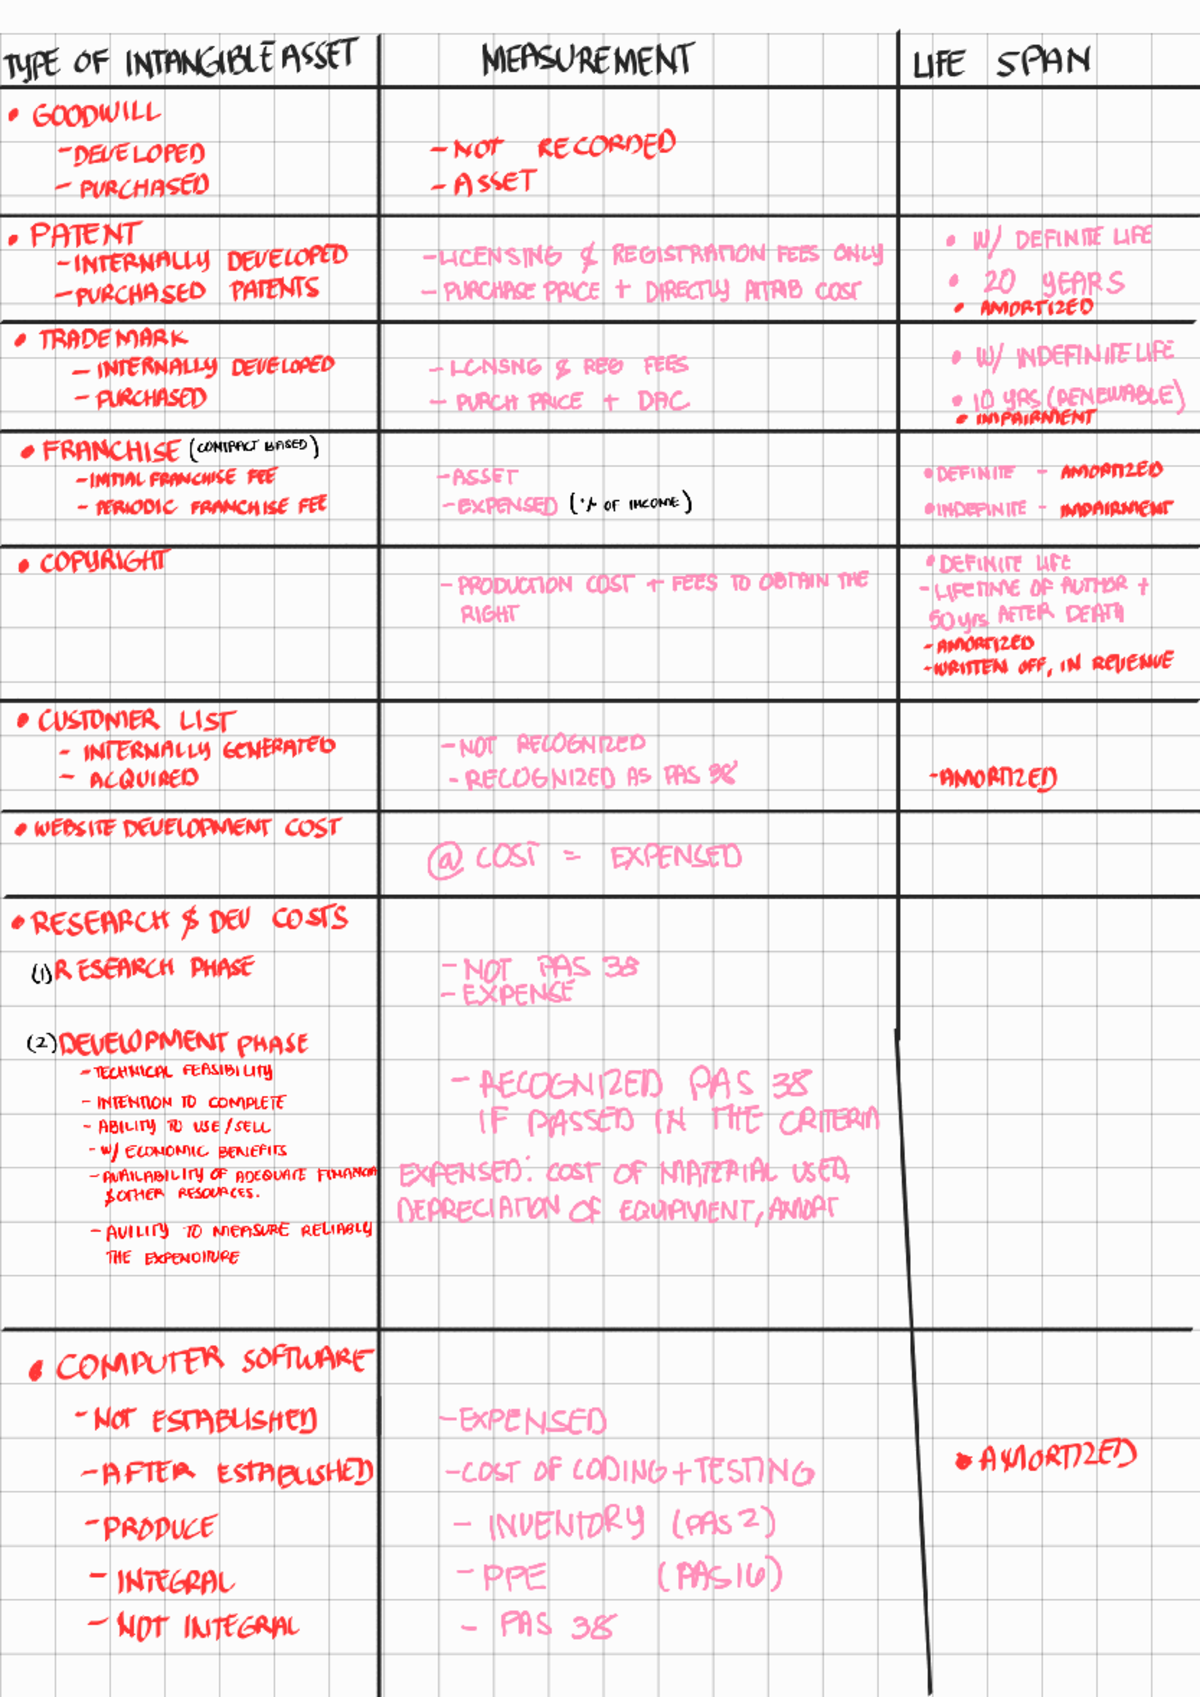 TYPE OF INTANGIBLE ASSET MEASUREMENT LIFE SPAN
• GOODWILL
- DEVELOPED - NOT RECORDED
- PURCHASED - ASSET
• PATENT • W/ DEFINITE LIFE
- INTERNALLY DEVELOPED - LICENSING & REGISTRATION FEES ONLY
- PURCHASED PATENTS - PURCHASE PRICE + DIRECTLY ATTRIB COST • 20 YEARS
• AMORTIZED
• TRADEMARK • W/ INDEFINITE LIFE
- INTERNALLY DEVELOPED - LCNSNG & REG FEES
- PURCHASED - PURCH PRICE + DAC • 10 YRS (RENEWABLE)
• IMPAIRMENT
• FRANCHISE (CONTRACT BASED)
- INITIAL FRANCHISE FEE - ASSET • DEFINITE - AMORTIZED
- PERIODIC FRANCHISE FEE - EXPENSED (% OF INCOME) • INDEFINITE - IMPAIRMENT
• COPYRIGHT • DEFINITE LIFE
- PRODUCTION COST + FEES TO OBTAIN THE - LIFETIME OF AUTHOR +
RIGHT 50 yrs AFTER DEATH
- AMORTIZED
- WRITTEN OFF, IN REVENUE
• CUSTOMER LIST
- INTERNALLY GENERATED - NOT RECOGNIZED
- ACQUIRED - RECOGNIZED AS PAS 38 - AMORTIZED
• WEBSITE DEVELOPMENT COST
@ COST = EXPENSED
• RESEARCH & DEV COSTS
(1) RESEARCH PHASE - NOT PAS 38
- EXPENSE
(2) DEVELOPMENT PHASE
- TECHNICAL FEASIBILITY - RECOGNIZED PAS 38
- INTENTION TO COMPLETE IF PASSED IN THE CRITERIA
- ABILITY TO USE/SELL
- W/ ECONOMIC BENEFITS
- AVAILABILITY OF ADEQUATE FINANCIA EXPENSED: COST OF MATERIAL USED,
& OTHER RESOURCES. DEPRECIATION OF EQUIPMENT, AMORT
- AVILITY TO MEASURE RELIABLY
THE EXPENDITURE
• COMPUTER SOFTWARE
- NOT ESTABLISHED - EXPENSED
- AFTER ESTABLISHED - COST OF CODING + TESTING • AMORTIZED
- PRODUCE - INVENTORY (PAS 2)
- INTEGRAL - PPE (PAS 16)
- NOT INTEGRAL - PAS 38